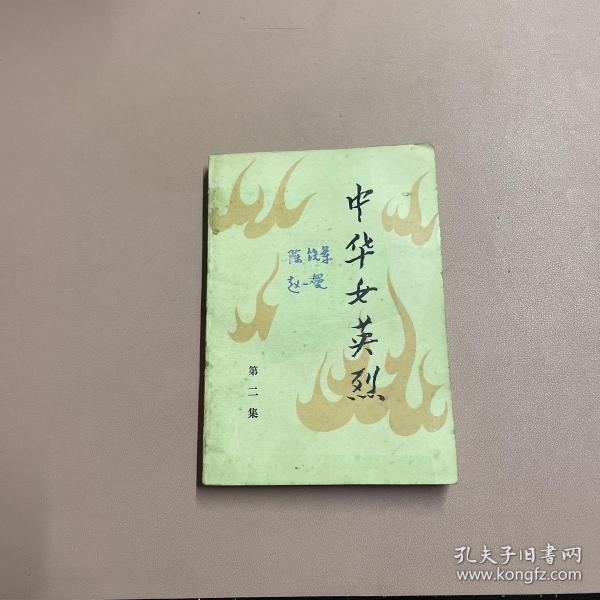 中华女英烈
陈铁军
赵一曼
第二集
孔夫子旧书网
www.kongfz.com